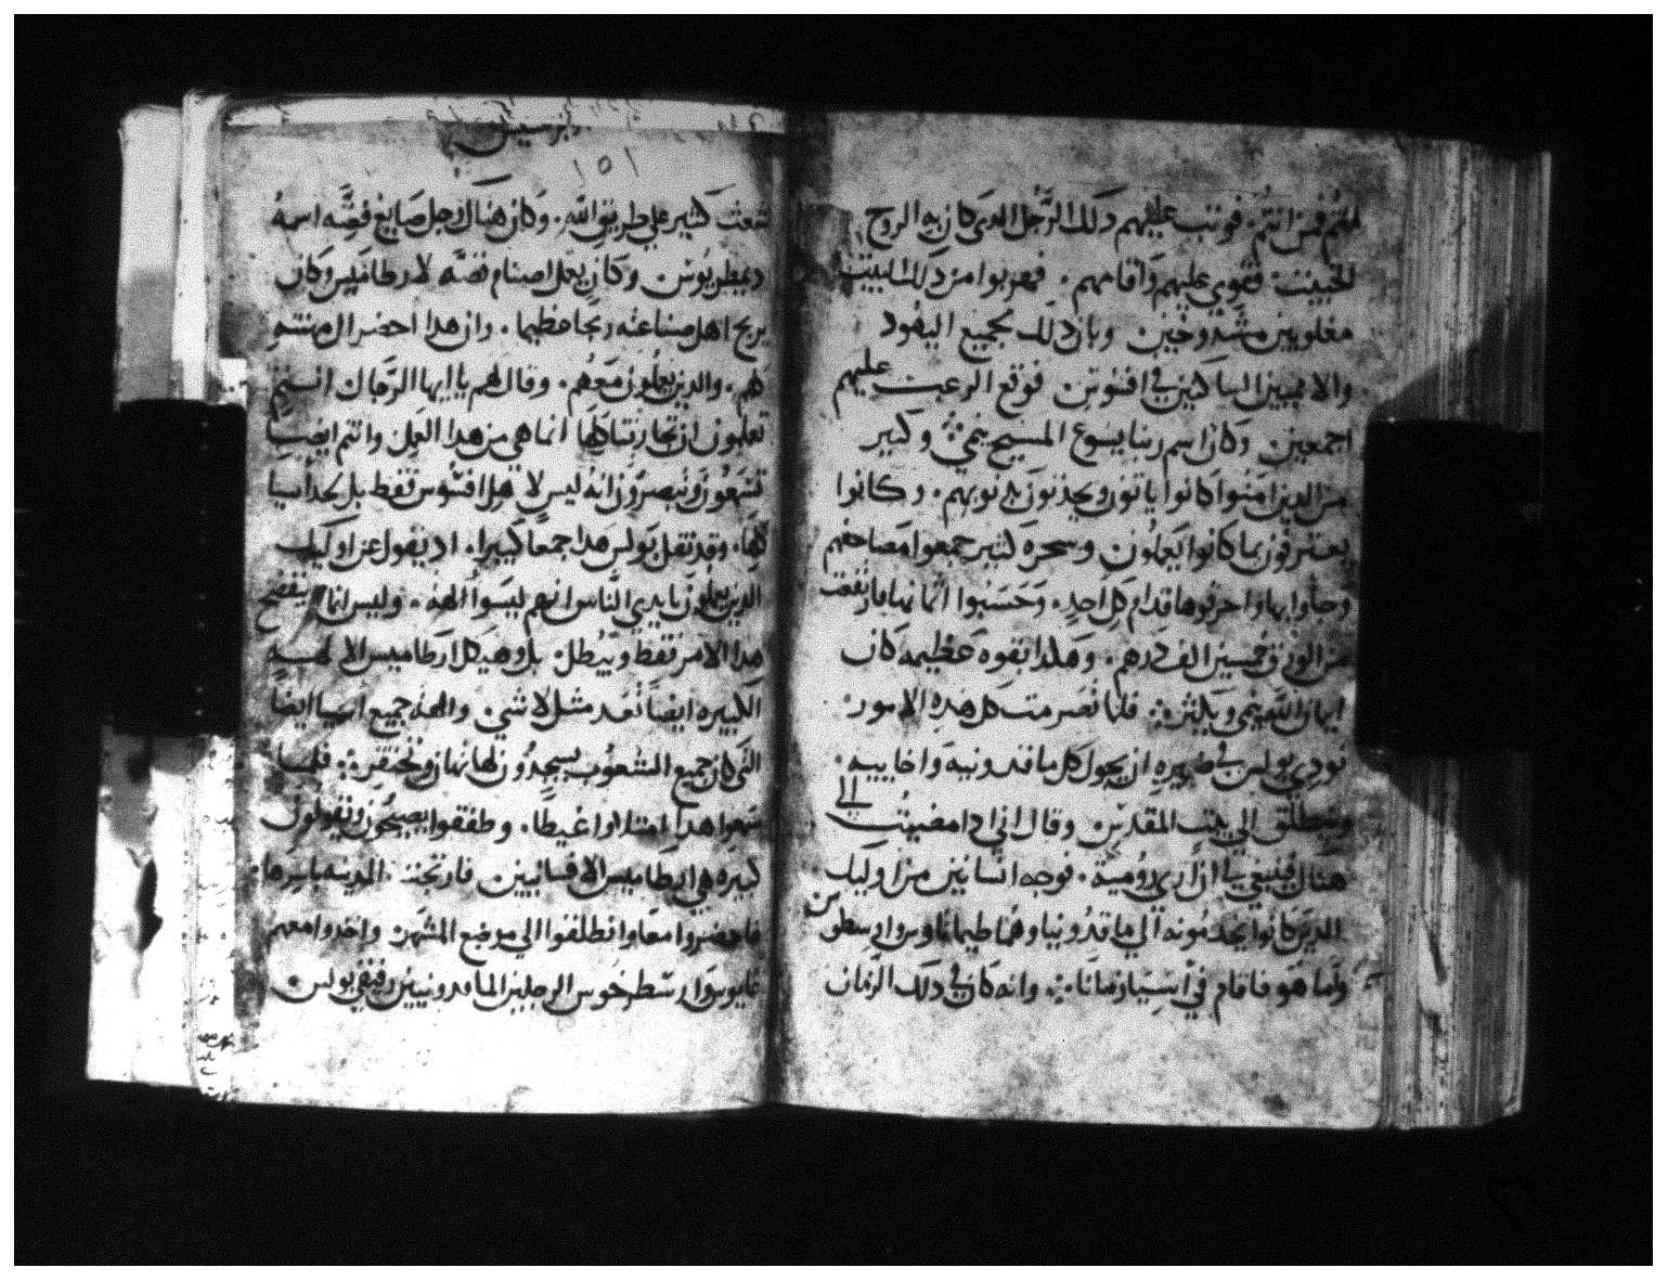 فمن انتم. فوثب عليهم دلك الرجل الدى كان به الروح
الخبيث فقوي عليهم واقامهم. فهربوا من دلك البيت
مغلوبين مشدوخين. وبان دلك لجميع اليهود
والاميين الساكنين في افسوس. فوقع الرعب عليهم
اجمعين. وكان اسم ربنا يسوع المسيح ينمي. وكثير
من الدين امنوا كانوا ياتون ويحدثون بدنوبهم. وكانوا
يعترفون بما كانوا يعملون وسحره كثير جمعوا مصاحفهم
وجاوا بها واحرقوها قدام كل احد. وحسبوا اثمانها فارتفعت
من الورق خمسين الف درهم. وهكدا بقوه عظيمه كان
ايمان الله ينمي ويكثر. فلما تصرمت كل هده الامور
نودي بولس في ضميره ان يجول كل ماقدونيه واخاييه.
وينطلق الى بيت المقدس. وقال اني ادا مضيت الى
هناك فينبغي لي ان ارى رومية. فوجه انسانين من اوليك
الدين كانوا يخدمونه الى ماقدونيا وهما طيماثاوس وارسطوس
واما هو فاقام في اسيا زمانا. وانه كان في دلك الزمان
١٥١
شعث كثير على طريق الله. وكان هناك رجل صايغ فضه اسمه
ديمطريوس وكان يعمل اصنام فضه لارطاميس وكان
يربح اهل صناعته ربحا عظيما. وان هدا احضر ال مهنته
كلهم. والدين يعملون معهم. وقال لهم يا ايها الرجال انتم
تعلمون ان تجارتنا كلها انما هي من هدا العمل وانتم ايضا
تسمعون وتبصرون انه ليس لاهل افسوس فقط بل لجد اسيا
كلها. وقد نقل بولس هدا جمعا كبيرا. اد يقول عن اوليك
الدين يعملون بايدي الناس انهم ليسوا الهه. وليس انما يفتضح
هدا الامر فقط ويبطل. بل وهيكل ارطاميس الالهة
الكبيره ايضا تعد مثل لا شي. والهة جميع اسيا ايضا
التي كان جميع الشعوب يسجدون لها تهان وتحتقر. فلما
سمعوا هدا امتلاوا غيظا. وطفقوا يصيحون ويقولون
كبيره هي ارطاميس الافسانيين. فارتجت المدينه باسرها.
فاحضروا معا وانطلقوا الى موضع المشهد. واخدوا معهم
غايوس وارسطرخوس الرجلين الماقدونيين رفيقي بولس.